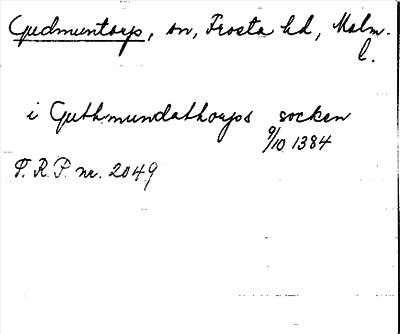 Gudmuntorps, sn, Frosta hd, Malm.
l.
i Guthmundathorps socken
9/10 1384
P. R. P. nr. 2049